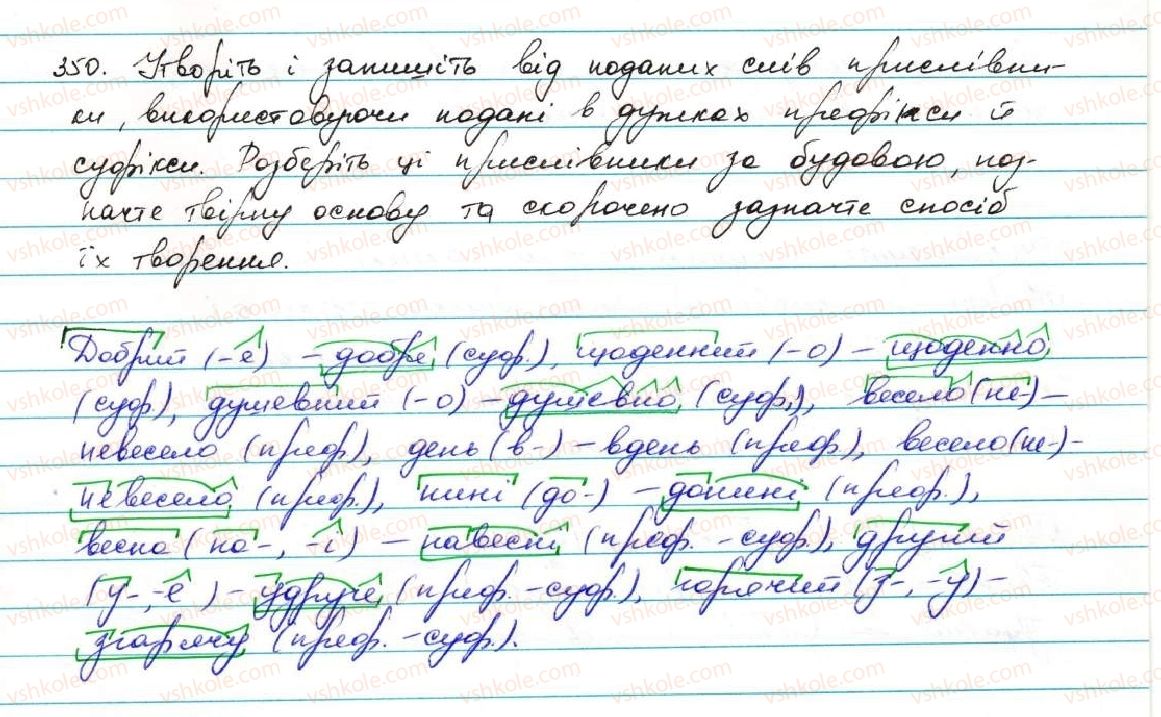 350. Утворіть і запишіть від поданих слів прислівни-
ки, використовуючи подані в дужках префікси й
суфікси. Розберіть ці прислівники за будовою, поз-
начте твірну основу та скорочено зазначте спосіб
їх творення.
Добрий (-е) – добре (суф.), щоденний (-о) – щоденно
(суф.), душевний (-о) – душевно (суф.), весело (не-) –
невесело (преф.), день (в-) – вдень (преф.), весело (не-) –
невесело (преф.), нині (до-) – донині (преф.),
весна (на-, -і) – навесні (преф. -суф.), другий
(у-, -е) – удруге (преф. -суф.), гарячий (з-, -у) –
згарячу (преф. -суф.).